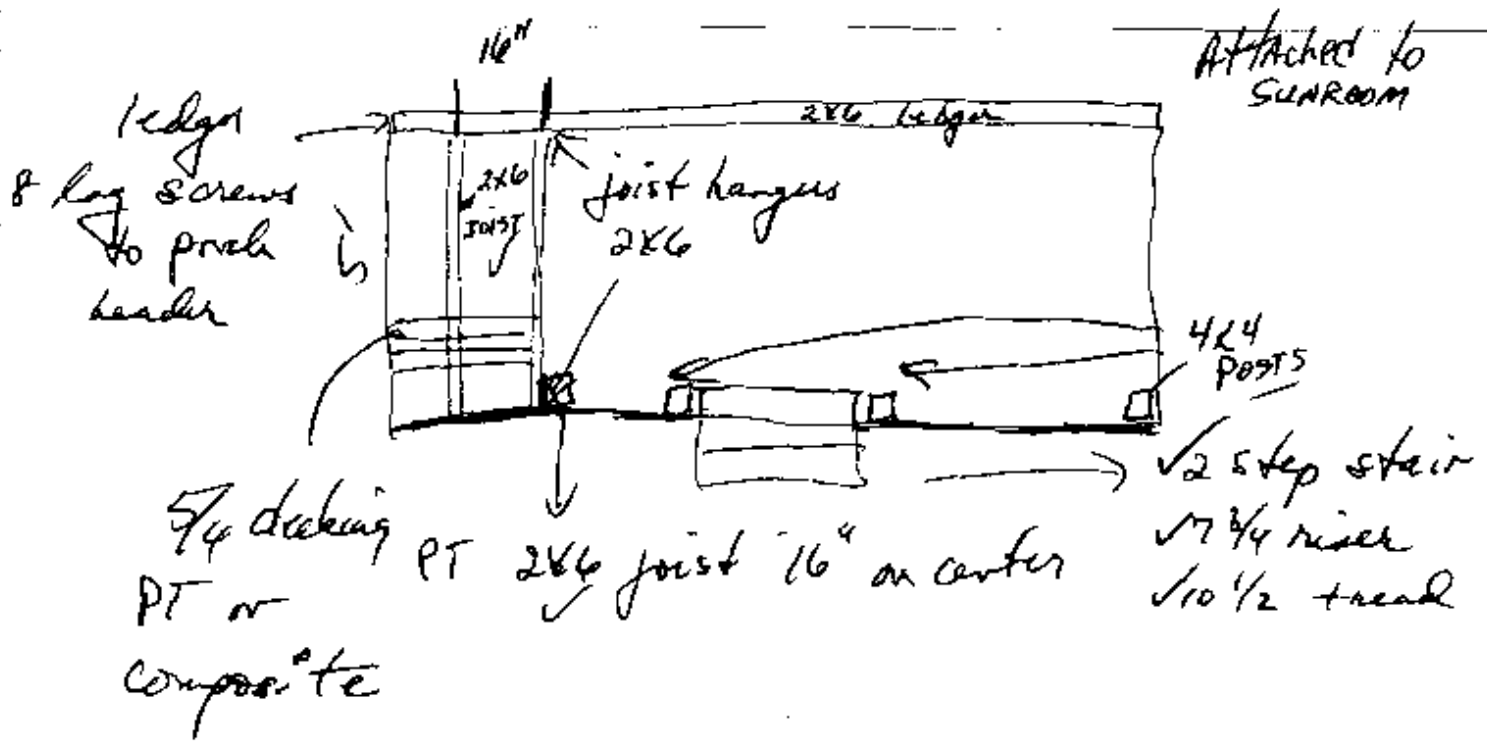 16"
Attached to
SUNROOM
ledger
8 lag screws
to porch
header
2x6 ledger
2x6
JOIST
joist hangers
2x6
4x4
POSTS
5/4 decking
PT or
composite
PT 2x6 joist 16" on center
✓2 step stair
✓7 3/4 riser
✓10 1/2 tread